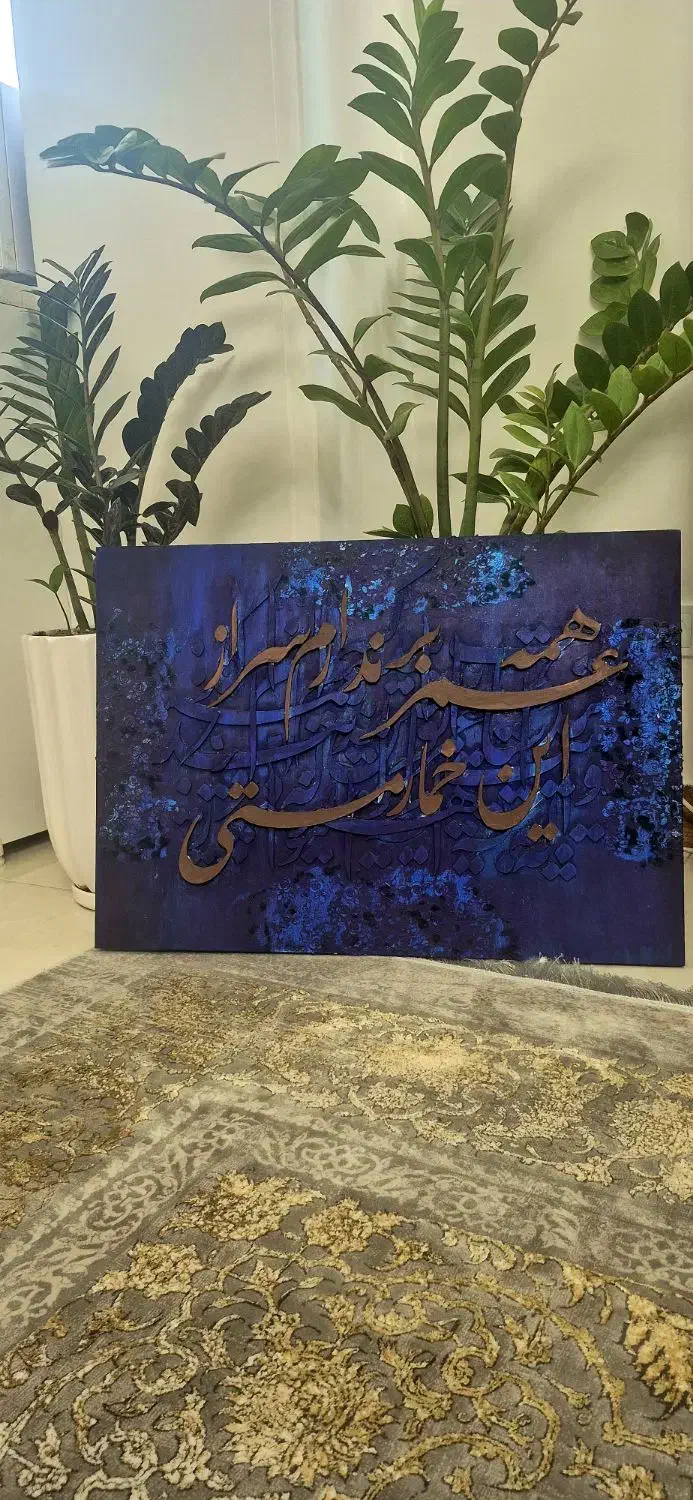 همه عمر برندارم سر از
این خمار مستی